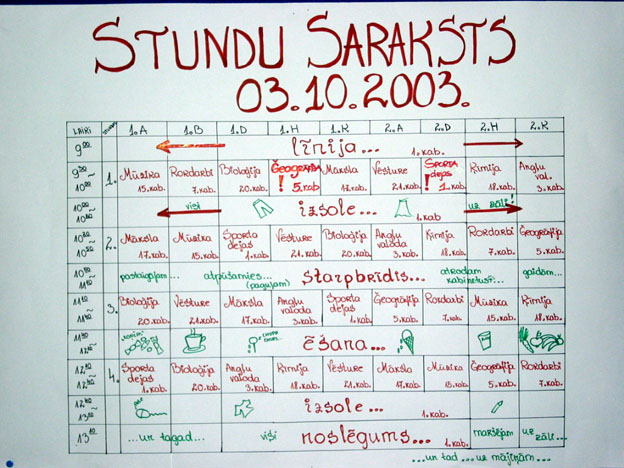 STUNDU SARAKSTS
03.10.2003.
LAIKI 1.A 1.B 1.D 1.H 1.K 2.A 2.D 2.H 2.K
9⁰⁰ līnija... 1.kab.
9²⁰ ~ 10⁰⁰ 1. Mūzika 15.kab. Rokdarbi 7.kab. Bioloģija 20.kab. Ģeogrāfija ! 5.kab. Māksla 17.kab. Vēsture 21.kab. Sporta dejas ! 1.kab. Ķīmija 18.kab. Angļu val. 3.kab.
10⁰⁰ ~ visi izsole... 1.kab uz zāli!
2. Māksla 17.kab. Mūzika 15.kab. Sporta dejas 1.kab. Vēsture 21.kab. Bioloģija 20.kab. Angļu valoda 3.kab. Ķīmija 18.kab. Rokdarbi 7.kab. Ģeogrāfija 5.kab.
pastaigājam... atpūšamies... (paguļam) starpbrīdis... atrodam kabinetus!... gaidām...
3. Bioloģija 20.kab. Vēsture 21.kab. Māksla 17.kab. Angļu valoda 3.kab. Sporta dejas 1.kab. Ģeogrāfija 5.kab. Rokdarbi 7.kab. Mūzika 15.kab. Ķīmija 18.kab.
ēšana...
4. Sporta dejas 1.kab. Bioloģija 20.kab. Angļu valoda 3.kab. Ķīmija 18.kab. Vēsture 21.kab. Māksla 17.kab. Mūzika 15.kab. Ģeogrāfija 5.kab. Rokdarbi 7.kab.
izsole... 1.kab.
...un tagad... visi noslēgums... 1.kab. maršējam uz zāli...
...un tad ... uz mājiņām...